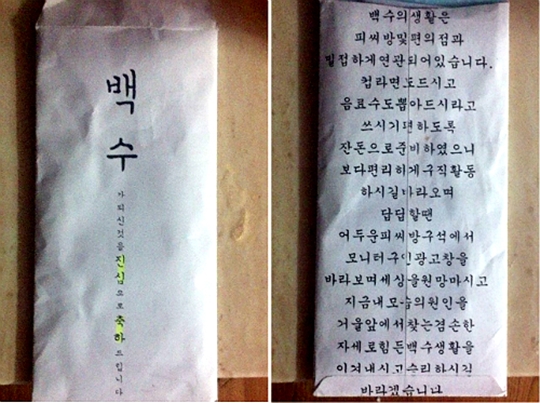 백수
가 되신것을 진심으로 축하 드립니다
백수의생활은
피씨방및편의점과
밀접하게연관되어있습니다.
컵라면도드시고
음료수도뽑아드시라고
쓰시기편하도록
잔돈으로준비하였으니
보다편리하게구직활동
하시길바라오며
답답할땐
어두운피씨방구석에서
모니터구인광고창을
바라보며세상을원망마시고
지금내모습의원인을
거울앞에서찾는겸손한
자세로힘든백수생활을
이겨내시고승리하시길
바라겠습니다